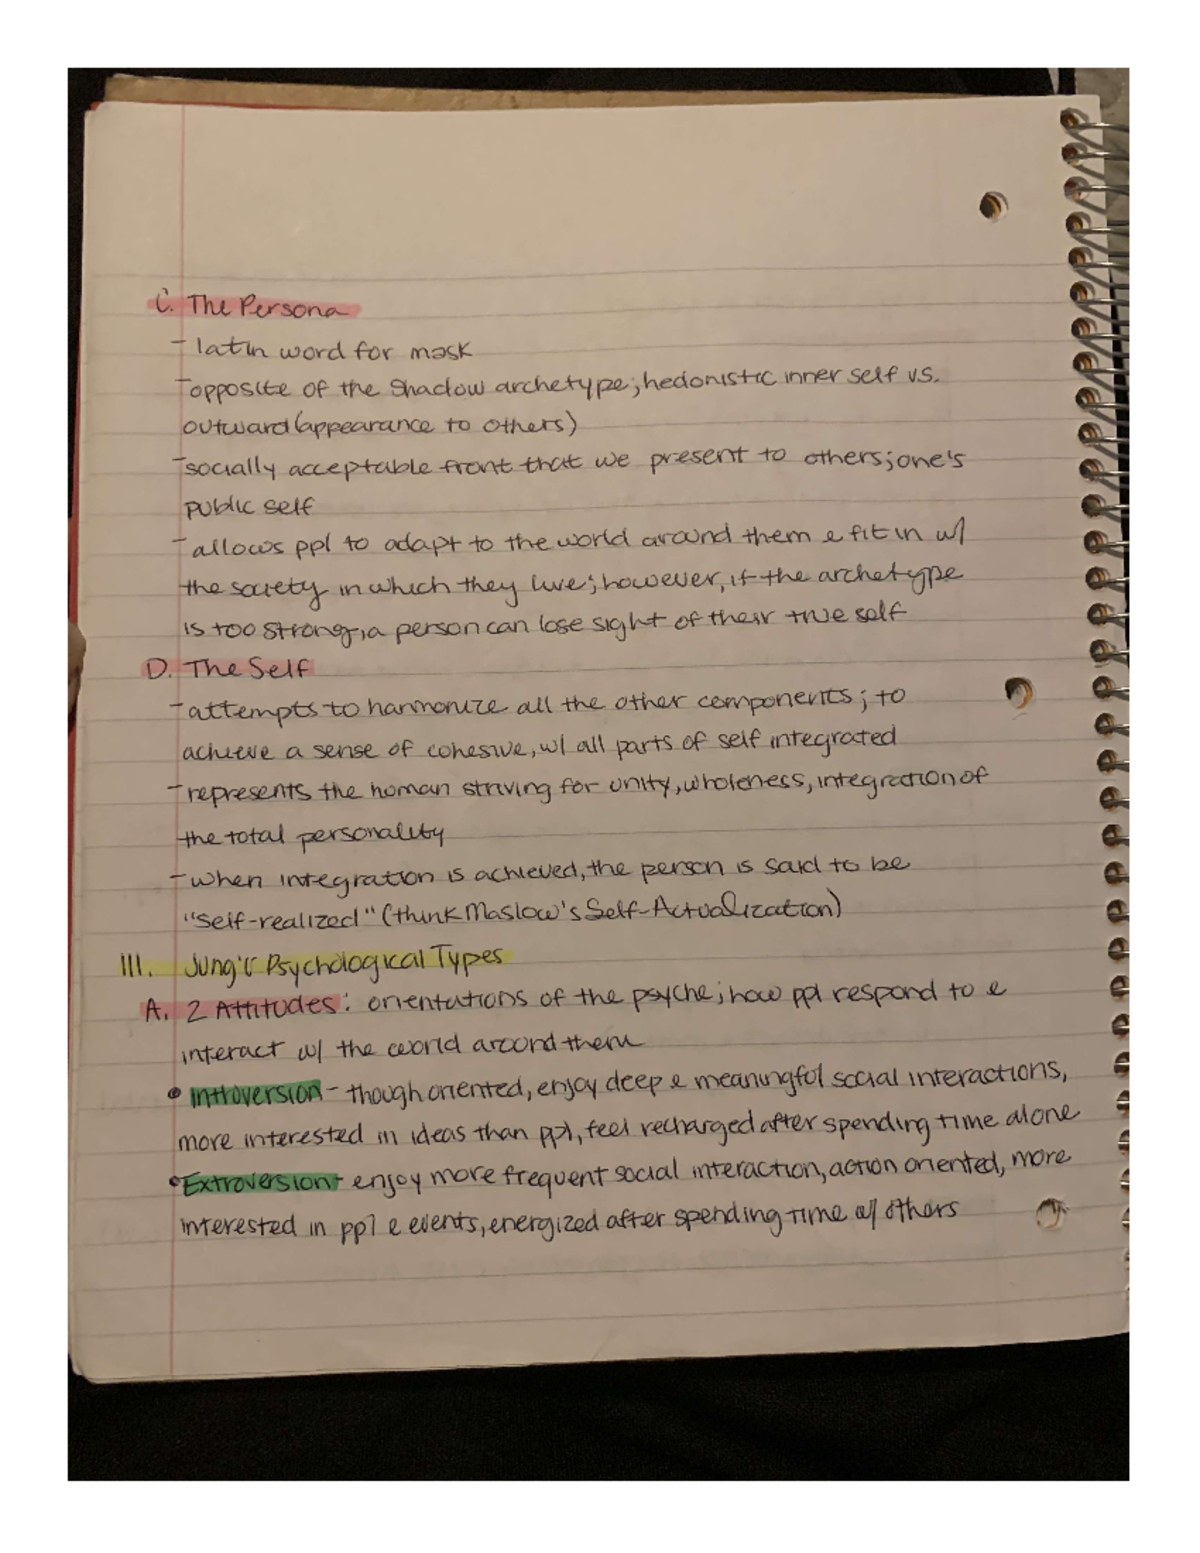 C. The Persona
- latin word for mask
- opposite of the Shadow archetype; hedonistic inner self vs.
outward (appearance to others)
- socially acceptable front that we present to others; one's
public self
- allows ppl to adapt to the world around them & fit in w/
the society in which they live; however, if the archetype
is too strong, a person can lose sight of their true self
D. The Self
- attempts to harmonize all the other components; to
achieve a sense of cohesive, w/ all parts of self integrated
- represents the human striving for unity, wholeness, integration of
the total personality
- when integration is achieved, the person is said to be
"self-realized" (think Maslow's Self-Actualization)
III. Jung's Psychological Types
A. 2 Attitudes: orientations of the psyche; how ppl respond to &
interact w/ the world around them
• Introversion - though oriented, enjoy deep & meaningful social interactions,
more interested in ideas than ppl, feel recharged after spending time alone
• Extroversion - enjoy more frequent social interaction, action oriented, more
interested in ppl & events, energized after spending time w/ others